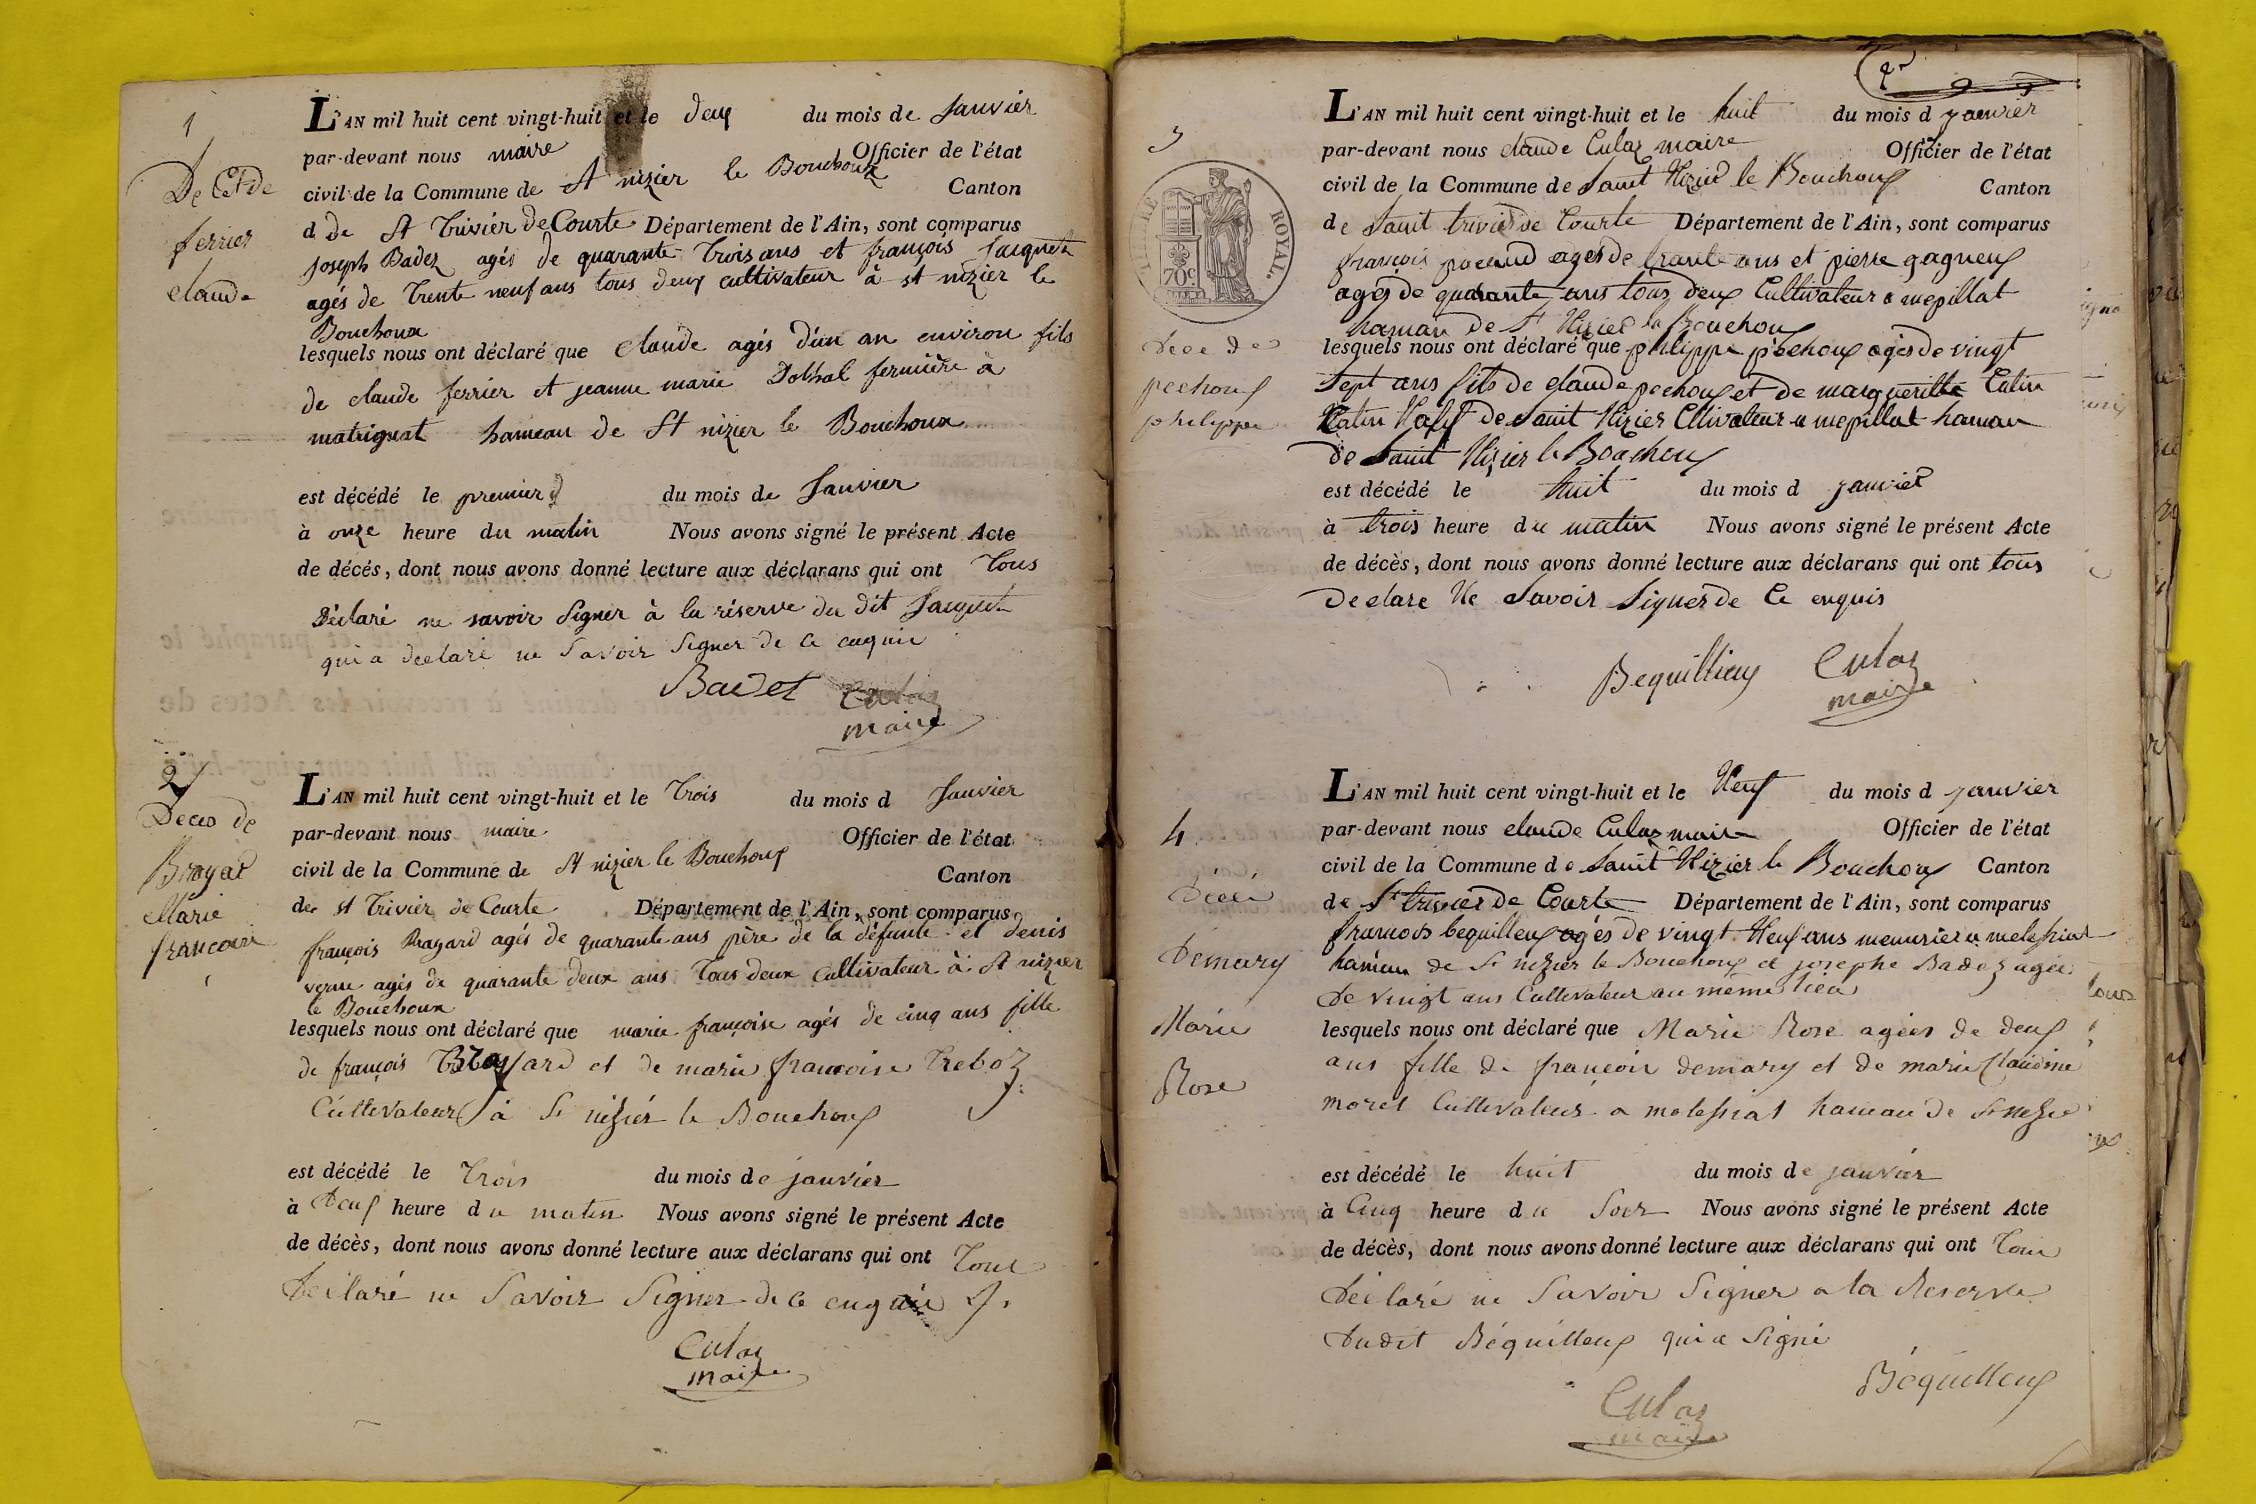 1
De Cet de
ferrier
claude
L'AN mil huit cent vingt-huit et le deux du mois de Janvier
par-devant nous maire Officier de l'état
civil de la Commune de St nizier le Bouchoux Canton
d de St Trivier de Courte Département de l'Ain, sont comparus
joseph Badez agés de quarante trois ans et françois Jaiguet
agés de Trente neuf ans tous deux cultivateur à st nizier le
Bouchoux
lesquels nous ont déclaré que claude agés d'un an environ fils
de claude ferrier et jeanne marie fermière à
matrignat hameau de St nizier le Bouchoux
est décédé le premier du mois de Janvier
à onze heure du matin Nous avons signé le présent Acte
de décés, dont nous avons donné lecture aux déclarans qui ont Tous
Déclaré ne savoir Signer à la réserve du dit
qui a déclaré ne Savoir Signer de ce enquis
Badet Culaz
maire
2
Deces de
Brayard
Marie
francoise
L'AN mil huit cent vingt-huit et le Trois du mois d Janvier
par-devant nous maire Officier de l'état
civil de la Commune de St nizier le Bouchoux Canton
de st Trivier de Courte Département de l'Ain, sont comparus
françois Brayard agés de quarante ans père de la défunte et denis
verne agés de quarante deux ans Tous deux Cultivateur à St nizier
le Bouchoux
lesquels nous ont déclaré que marie françoise agés de cinq ans fille
de françois Brayard et de marie francoise Treboz
Cultivateurs à St nizier le Bouchoux
est décédé le Trois du mois de janvier
à Deux heure du matin Nous avons signé le présent Acte
de décès, dont nous avons donné lecture aux déclarans qui ont Tous
Déclaré ne Savoir Signer de ce enquis
Culaz
maire
2
3
TIMBRE ROYAL.
70c
Dece de
pechoux
philippe
L'AN mil huit cent vingt-huit et le huit du mois d janvier
par-devant nous claude Culaz maire Officier de l'état
civil de la Commune de Saint Nizier le Bouchoux Canton
de Saint trivier de Courte Département de l'Ain, sont comparus
françois agés de trante ans et pierre gagneux
agés de quarante ans tous deux Cultivateur a mepillat
haman de St Nizier le Bouchoux
lesquels nous ont déclaré que philippe pechoux agés de vingt
Sept ans fils de claude pechoux et de margueritte Catin
Catin Natif de Saint Nizier Cltivateur a mepillat haman
de Saint Nizier le Bouchoux
est décédé le huit du mois d janvier
à trois heure du matin Nous avons signé le présent Acte
de décès, dont nous avons donné lecture aux déclarans qui ont tous
Declare Ne Savoir Signer de Ce enquis
Bequillieux Culaz
maire
4
Décés
Demary
Marie
Rose
L'AN mil huit cent vingt-huit et le Neuf du mois d janvier
par-devant nous claude Culaz maire Officier de l'état
civil de la Commune de Saint Nizier le Bouchoux Canton
de St trivier de Courte Département de l'Ain, sont comparus
francois bequilleux agés de vingt Neuf ans menusier a
hameau de St nizier le Bouchoux et josephe Badez agée
de vingt ans Cultivateur au même lieu
lesquels nous ont déclaré que Marie Rose agées de deux
ans fille de françois demary et de marie Claudine
morel Cultivateur a hameau de St nizier
est décédé le huit du mois de janvier
à Cinq heure du Soir Nous avons signé le présent Acte
de décès, dont nous avons donné lecture aux déclarans qui ont Tous
Déclaré ne Savoir Signer a la Reserve
Dudit Béquilleux qui a Signé
Béquilleux
Culaz
maire